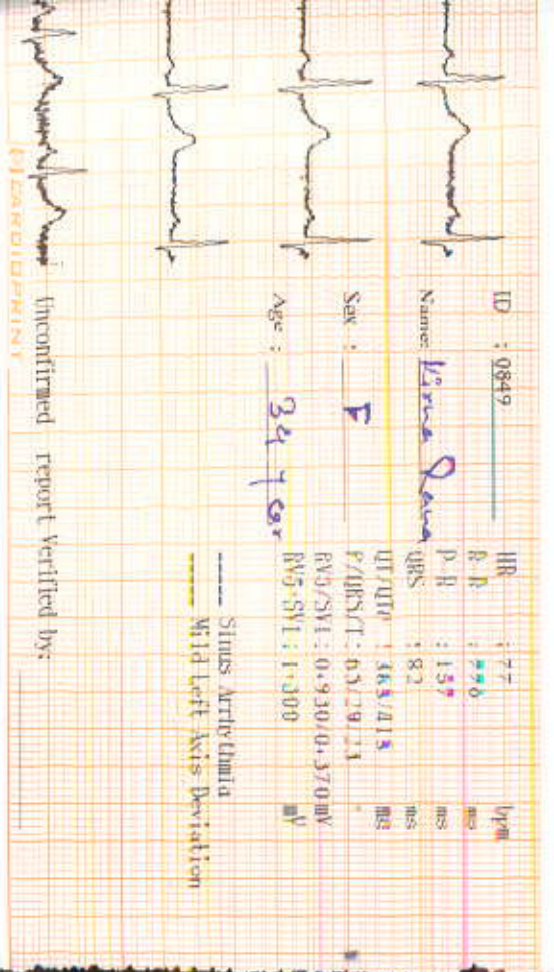 ID : 0849
Name: Kirna Rana
Sex : F
Age : 34 year
HR : 77 bpm
R-R : ms
P-R : ms
QRS : 82 ms
QT/QTc : 363/413 ms
P/QRS/T : 63/29/23 °
RV5/SV1 : 0.930/0.370 mV
RV5+SV1 : 1.300 mV
----- Sinus Arrhythmia
----- Mild Left Axis Deviation
Unconfirmed report Verified by:
CARDIOPRINT